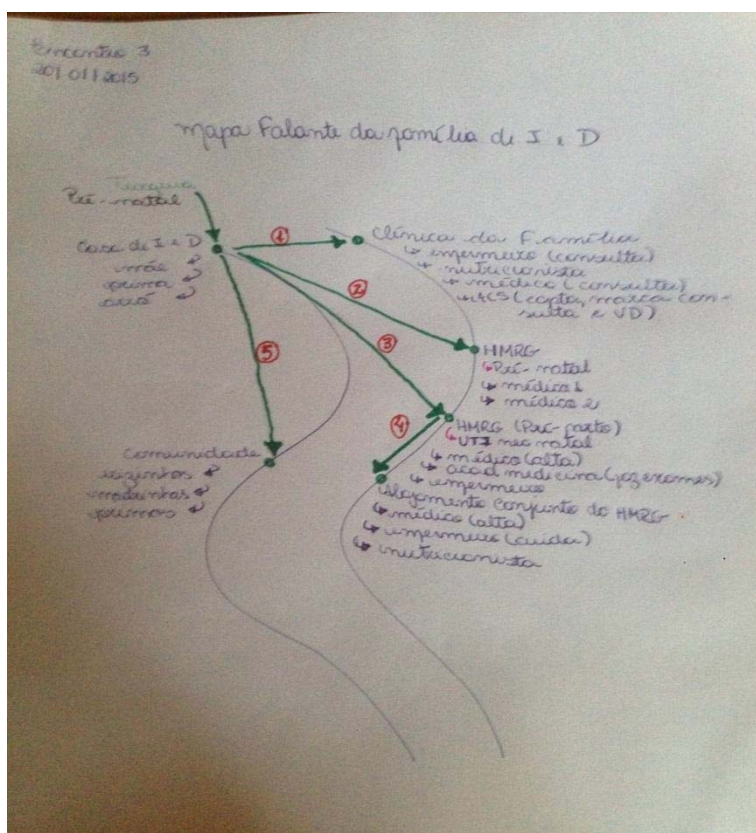 Encontro 3
20/01/2015
mapa Falante da família de I e D
Pré-natal
Casa de I e D
mãe
prima
avó
①
Clínica da Família
enfermeiro (consulta)
nutricionista
médico (consulta)
ACS (capta, marca con-
sulta e VD)
②
HMRG
Pré-natal
médico 1
médico 2
③
HMRG (Pré-parto)
UTI neo natal
médico (alta)
acad medicina (faz exames)
enfermeiro
④
Alojamento conjunto do HMRG
médico (alta)
enfermeiro (cuida)
nutricionista
⑤
Comunidade
vizinhos
madrinhas
primos